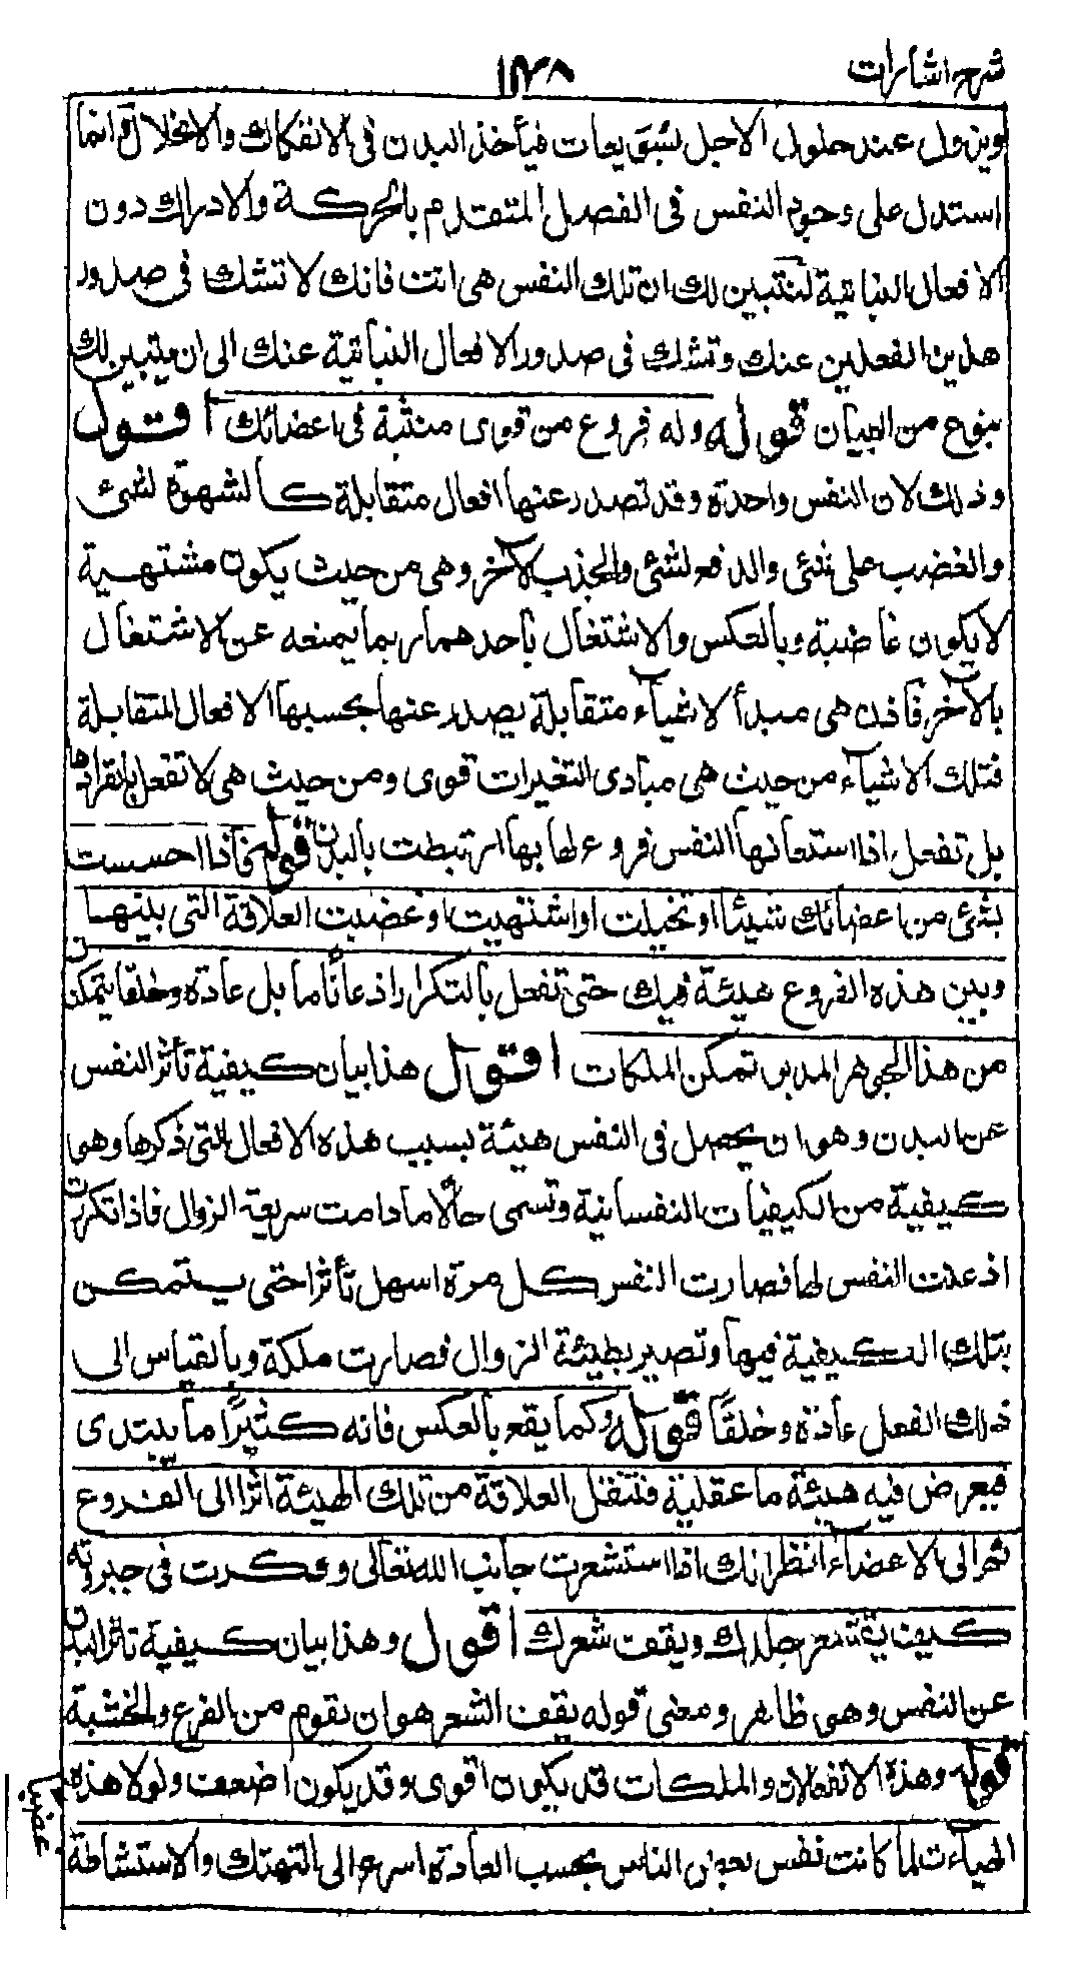 شرح اشارات
١٣٨
ويزول عند حلول الاجل بسُوَيعات فيأخذ البدن فى الانفكاك والانحلال وانما
استدل على وجود النفس فى الفصل المتقدم بالحركة والادراك دون
الافعال النباتية لتتبين لك ان تلك النفس هى انت فانك لا تشك فى صدور
هذين الفعلين عنك وتشك فى صدور الافعال النباتية عنك الى ان يتبين لك
بنوع من البيان قوله وله فروع من قوى منبثة فى اعضائك اقول
وذلك لان النفس واحدة وقد تصدر عنها افعال متقابلة كالشهوة لشئ
والغضب على شئ والدفع لشئ والجذب لآخر وهى من حيث يكون مشتهية
لا يكون غاضبة وبالعكس والاشتغال باحدهما ربما يمنعه عن الاشتغال
بالآخر فاذن هى مبدأ لاشياء متقابلة يصدر عنها بحسبها الافعال المتقابلة
فتلك الاشياء من حيث هى مبادى التغيرات قوى ومن حيث هى لا تفعل بانفرادها
بل تفعل اذا استعانها النفس فروع لها بها ارتبطت بالبدن قوله فاذا احسست
بشئ من اعضائك شيئا او تخيلت او اشتهيت او غضبت العلاقة التى بينها
وبين هذه الفروع هيئة فيك حتى تفعل بالتكرار اذعانًا ما بل عادة وخلقا يتمكنان
من هذا الجوهر المدبر تمكن الملكات اقول هذا بيان كيفية تأثر النفس
عن البدن وهو ان يحصل فى النفس هيئة بسبب هذه الافعال التى ذكرها وهى
كيفية من الكيفيات النفسانية وتسمى حالًا ما دامت سريعة الزوال فاذا تكررت
اذعنت النفس لها فصارت النفس كل مرة اسهل تأثرا حتى يتمكن
بتلك الكيفية فيها وتصير بطيئة الزوال فصارت ملكة وبالقياس الى
ذلك الفعل عادة وخلقًا قوله وكما يقع بالعكس فانه كثيرًا ما يبتدى
فيعرض فيه هيئة ما عقلية فتنقل العلاقة من تلك الهيئة اثرا الى الفروع
ثم الى الاعضاء انظر انك اذا استشعرت جانب الله تعالى وفكرت فى جبروته
كيف يقشعر جلدك ويقف شعرك اقول وهذا بيان كيفية تاثر البدن
عن النفس وهى ظاهر ومعنى قوله يقف الشعر هو ان يقوم من الفزع والخشية
قوله وهذه الانفعالات والملكات قد يكون اقوى وقد يكون اضعف ولولا هذه
الهيآت لما كانت نفس بعض الناس بحسب العادة اسرع الى التهتك والاستشاطة
غضبا